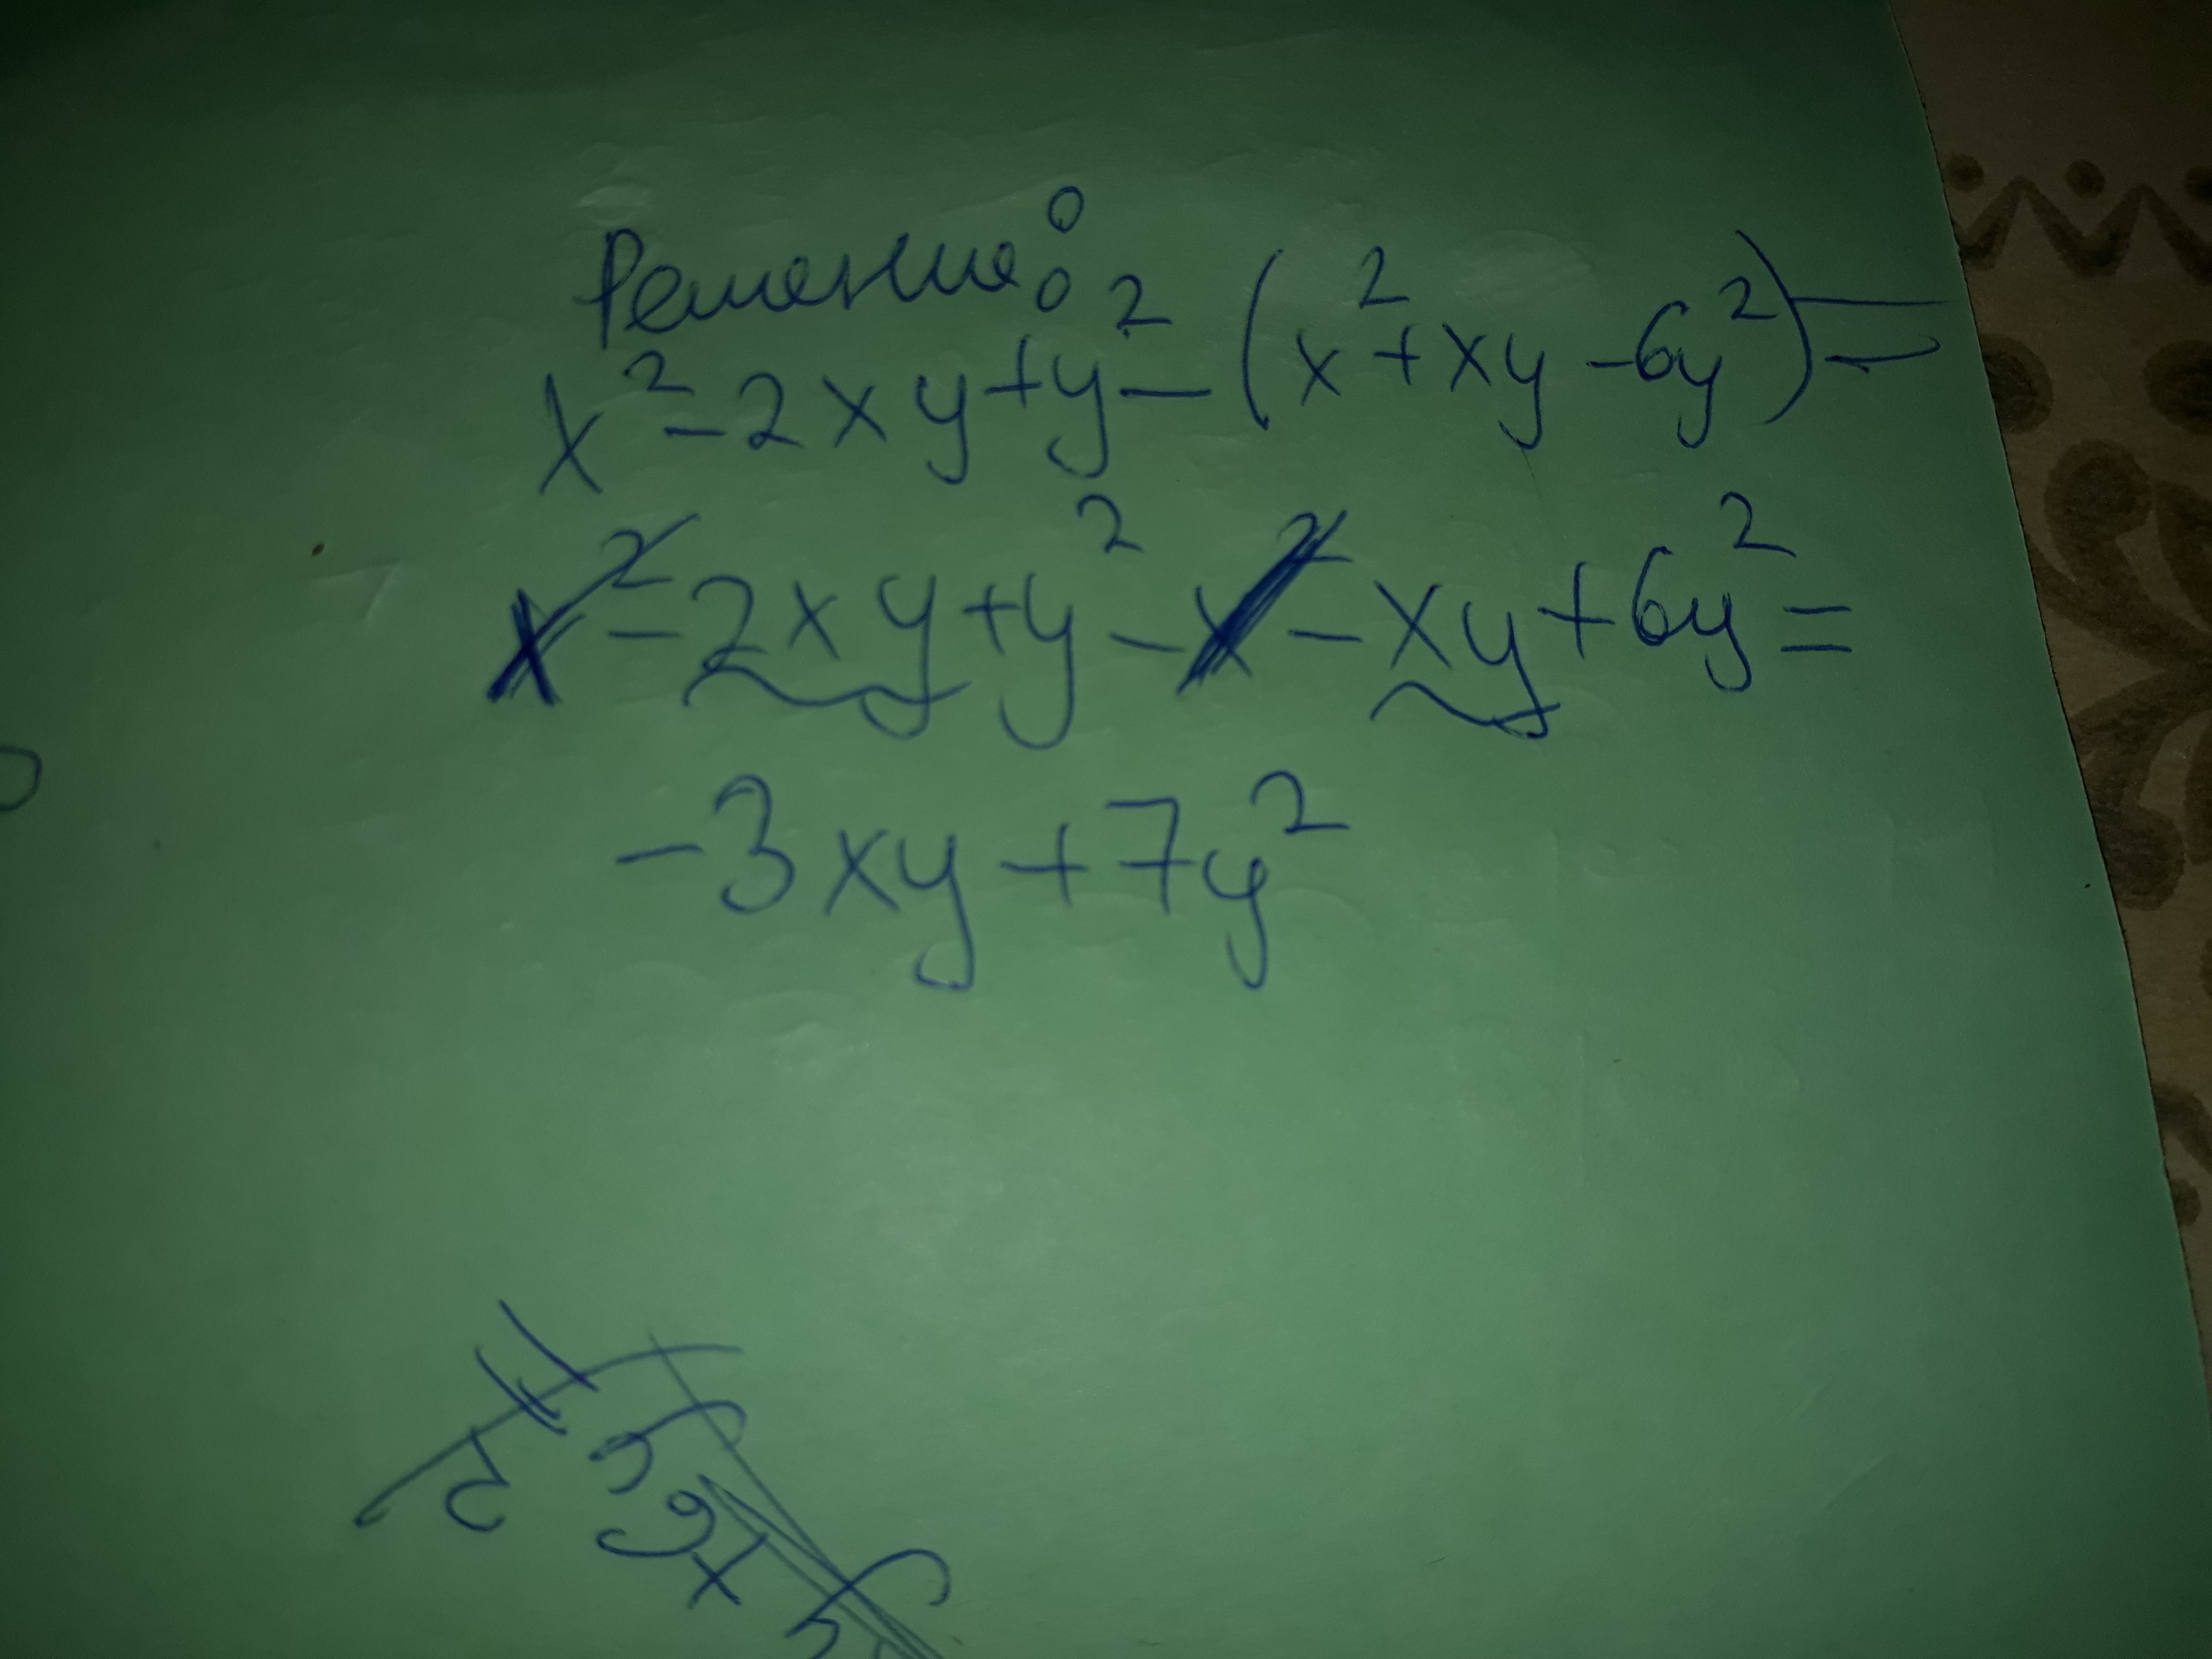 Решение:
x²-2xy+y²-(x²+xy-6y²)=
x²-2xy+y²-x²-xy+6y²=
-3xy+7y²